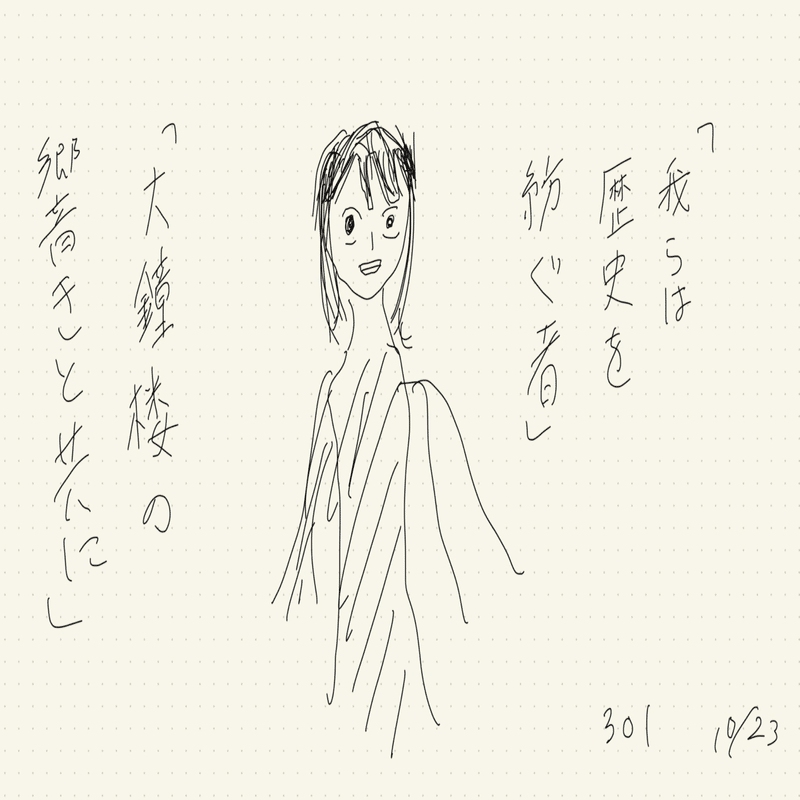 「我らは
歴史を
紡ぐ者」
「大鐘楼の
響きと共に」
301
10/23